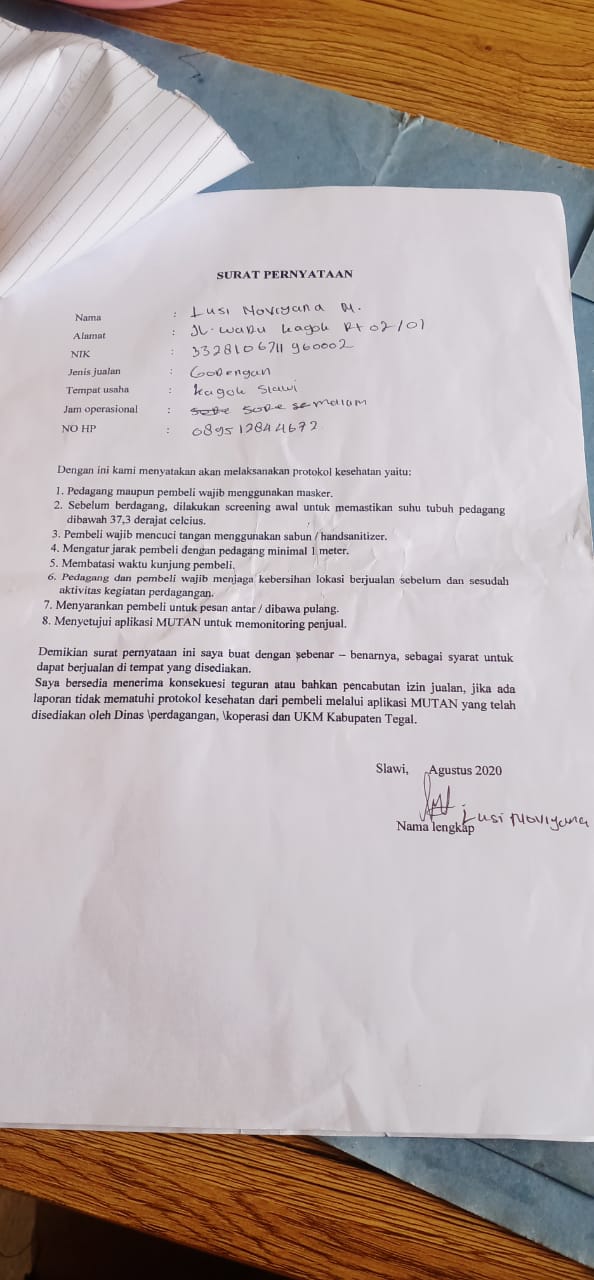 SURAT PERNYATAAN
Nama : Lusi Noviyana M.
Alamat : JL. waru kagok Rt 02/01
NIK : 3328106711960002
Jenis jualan : Gorengan
Tempat usaha : kagok Slawi
Jam operasional : sore sore semalam
NO HP : 089512844672
Dengan ini kami menyatakan akan melaksanakan protokol kesehatan yaitu:
1. Pedagang maupun pembeli wajib menggunakan masker.
2. Sebelum berdagang, dilakukan screening awal untuk memastikan suhu tubuh pedagang
dibawah 37,3 derajat celcius.
3. Pembeli wajib mencuci tangan menggunakan sabun / handsanitizer.
4. Mengatur jarak pembeli dengan pedagang minimal 1 meter.
5. Membatasi waktu kunjung pembeli.
6. Pedagang dan pembeli wajib menjaga kebersihan lokasi berjualan sebelum dan sesudah
aktivitas kegiatan perdagangan.
7. Menyarankan pembeli untuk pesan antar / dibawa pulang.
8. Menyetujui aplikasi MUTAN untuk memonitoring penjual.
Demikian surat pernyataan ini saya buat dengan sebenar – benarnya, sebagai syarat untuk
dapat berjualan di tempat yang disediakan.
Saya bersedia menerima konsekuesi teguran atau bahkan pencabutan izin jualan, jika ada
laporan tidak mematuhi protokol kesehatan dari pembeli melalui aplikasi MUTAN yang telah
disediakan oleh Dinas \perdagangan, \koperasi dan UKM Kabupaten Tegal.
Slawi, Agustus 2020
Lusi Noviyana
Nama lengkap